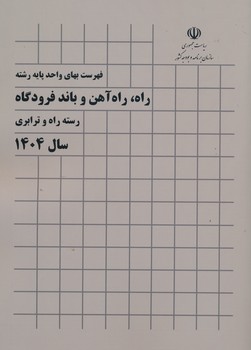 ریاست جمهوری
سازمان برنامه و بودجه کشور
فهرست بهای واحد پایه رشته
راه، راه‌آهن و باند فرودگاه
رسته راه و ترابری
سال ۱۴۰۴